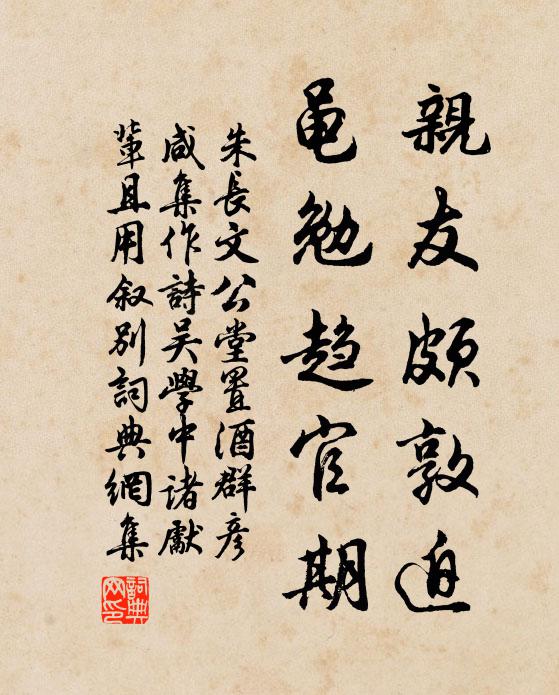 親友頗敦迫
黽勉趨官期
朱長文公堂置酒群彦
咸集作詩吴學中諸獻
輩且用叙别詞典網集
詞典網印